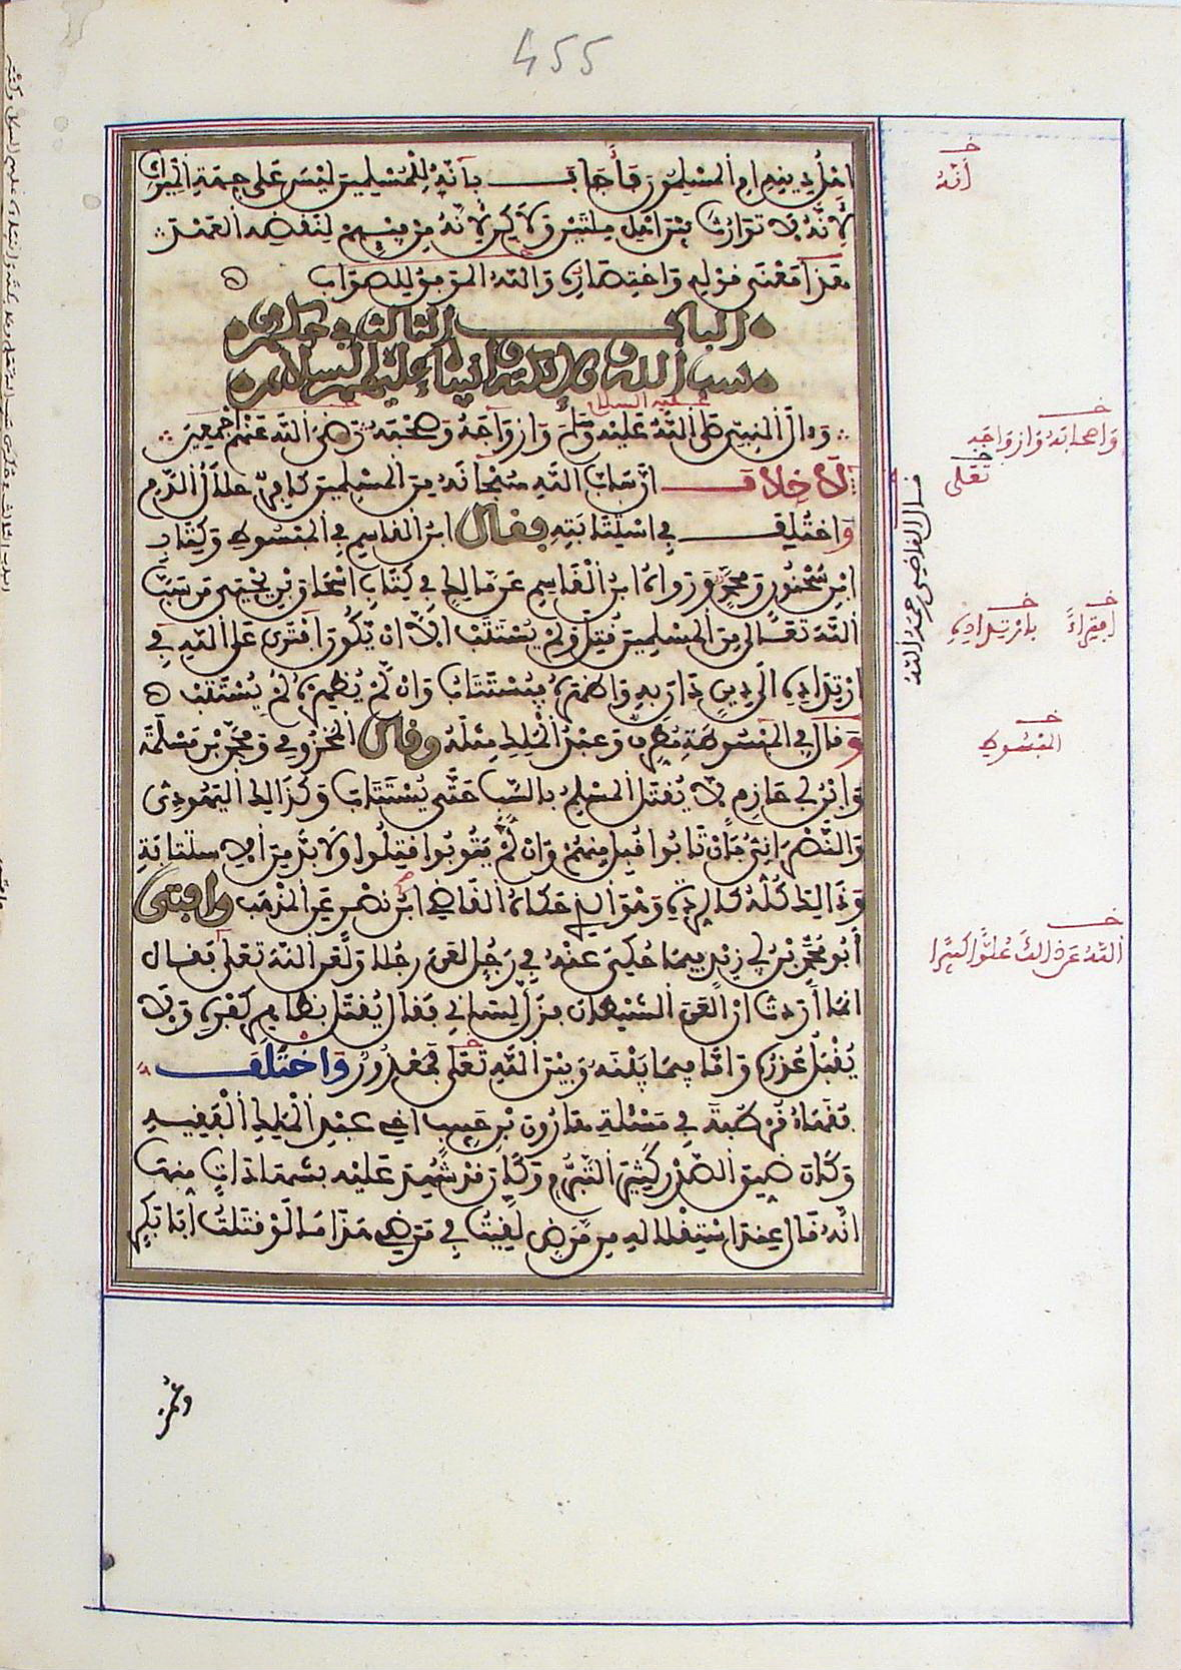 455
اهل دينه ام المسلمون فأجاب بأنه للمسلمين ليس على جهة الميراث
لأنه لا توارث بين اهل ملتين ولاكن لأنه من فيئهم لنقضه العهد
هذا معنى قوله واختصاره والله الموفق للصواب
الباب الثالث في حكم من
سب الله وملائكته وانبياءه عليهم السلام
وءال النبي صلى الله عليه وسلم وازواجه وصحبه ورضي الله عنهم أجمعين
لا خلاف ان ساب الله سبحانه من المسلمين كافر حلال الدم
واختلف في استتابته فقال ابن القاسم في المبسوط وكتاب
ابن سحنون ومحمد ورواه ابن القاسم عن مالك في كتاب اسحاق بن يحيى من سب
الله تعالى من المسلمين قتل ولم يستتب الا ان يكون افترى على الله في
ارتداده الى دين دان به واظهره فيستتاب وان لم يظهره لم يستتب
وقال في المبسوطة مطرف وعبد الملك مثله وقال المخزومي ومحمد بن مسلمة
وابن أبي حازم لا يقتل المسلم بالسب حتى يستتاب وكذالك اليهودي
والنصراني فإن تابوا قبل منهم وان لم يتوبوا قتلوا ولا بد من الاستتابة
وذالك كله كالردة وهو الذي حكاه القاضي ابن نصر عن المذهب وافتى
أبو محمد بن أبي زيد فيما حكي عنه في رجل لعن رجلا ولعن الله تعلى فقال
انما أردت ان العن الشيطان فزل لساني فقال يقتل بظاهر كفره ولا
يقبل عذره واما فيما بينه وبين الله تعلى فمعذور واختلف
فقهاء قرطبة في مسئلة هارون بن حبيب اخي عبد الملك الفقيه
وكان ضيق الصدر كثير التبرم وكان قد شهد عليه بشهادات منها
انه قال عند استقلاله من مرض لقيت في مرضي هذا ما لو قتلت أبا بكر
وعمر
خ
أنه
عليه السلام
خ
وأصحابه وازواجه
خ
تعلى
قال القاضي رحمه الله
خ
افتراء
خ
بارتداده
خ
المبسوط
خ
الله عن ذالك علوا كبيرا